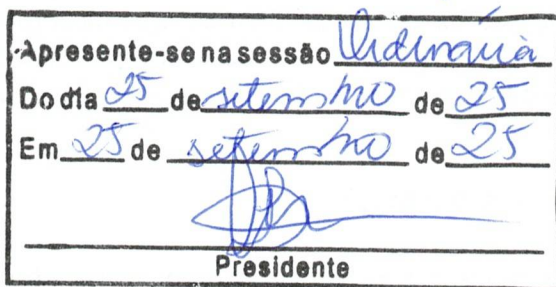 Apresente-se na sessão Ordinária
Do dia 25 de setembro de 25
Em 25 de setembro de 25
Presidente